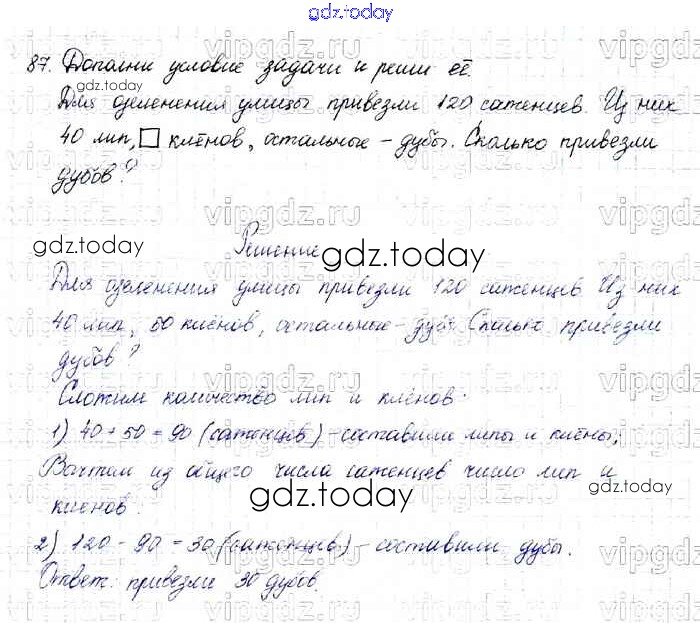 gdz.today
87. Дополни условие задачи и реши её.
gdz.today
Для озеленения улицы привезли 120 саженцев. Из них
40 лип, □ клёнов, остальные – дубы. Сколько привезли
дубов?
gdz.today
Решение
gdz.today
Для озеленения улицы привезли 120 саженцев. Из них
40 лип, 50 клёнов, остальные – дубы. Сколько привезли
дубов?
Сложим количество лип и клёнов:
1) 40 + 50 = 90 (саженцев) – составили липы и клёны;
Вычтем из общего числа саженцев число лип и
клёнов.
gdz.today
gdz.today
2) 120 - 90 = 30 (саженцев) – составили дубы.
Ответ: привезли 30 дубов.
gdz.today
vipgdz.ru